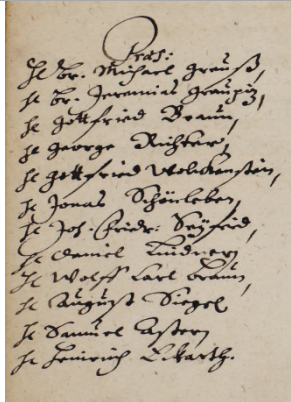 Præs:
H. Br. Michael Grauß,
H. Br. Jeremias Graupitz,
H. Gottfried Braun,
H. George Richter,
H. Gottfried Wolckenstein,
H. Jonas Schönleben,
H. Joh. Fridr. Seyfried,
H. Daniel Lindner,
H. Wolff Carl Braun,
H. August Siegel
H. Samuel Astern
H. Heinrich Eckarth.